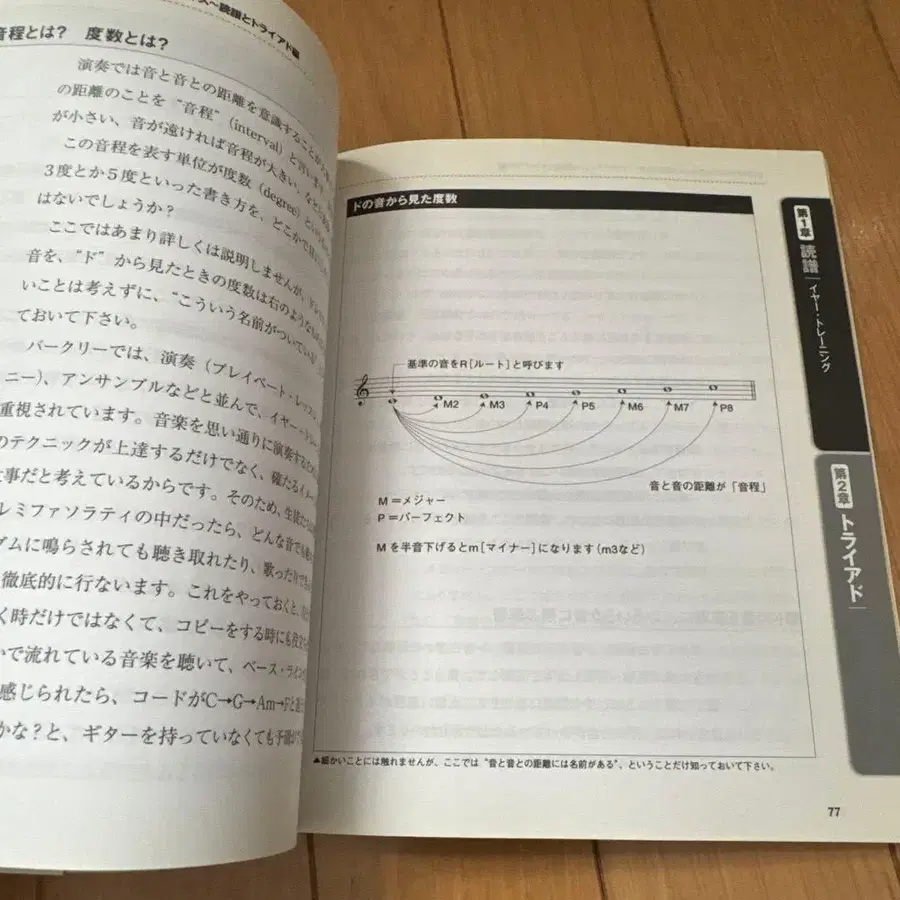 ス～読譜とトライアド編
音程とは？ 度数とは？
演奏では音と音との距離を意識することが
の距離のことを“音程”（interval）と言います
が小さい、音が遠ければ音程が大きい」など
この音程を表す単位が度数（degree）という
3度とか5度といった書き方を、どこかで
はないでしょうか？
ここではあまり詳しくは説明しませんが、
音を、“ド”から見たときの度数は右のような
いことは考えずに、“こういう名前がついている
ておいて下さい。
バークリーでは、演奏（プレイベート・レッス
ニー）、アンサンブルなどと並んで、イヤー・トレー
重視されています。音楽を思い通りに演奏するため
のテクニックが上達するだけでなく、確たるイメー
事だと考えているからです。そのため、生徒
レミファソラティの中だったら、どんな音でも
ダムに鳴らされても聴き取れたり、歌ったり
徹底的に行ないます。これをやっておくと、
く時だけではなくて、コピーをする時にも役
で流れている音楽を聴いて、ベース・ライン
感じられたら、コードがC→G→Am→Fと
かな？と、ギターを持っていなくても予測
ドの音から見た度数
基準の音をR［ルート］と呼びます
M2 M3 P4 P5 M6 M7 P8
音と音の距離が「音程」
M＝メジャー
P＝パーフェクト
M を半音下げるとm［マイナー］になります（m3など）
▲細かいことには触れませんが、ここでは“音と音との距離には名前がある”、ということだけ知っておいて下さい。
77
第1章 読譜 イヤー・トレーニング
第2章 トライアド